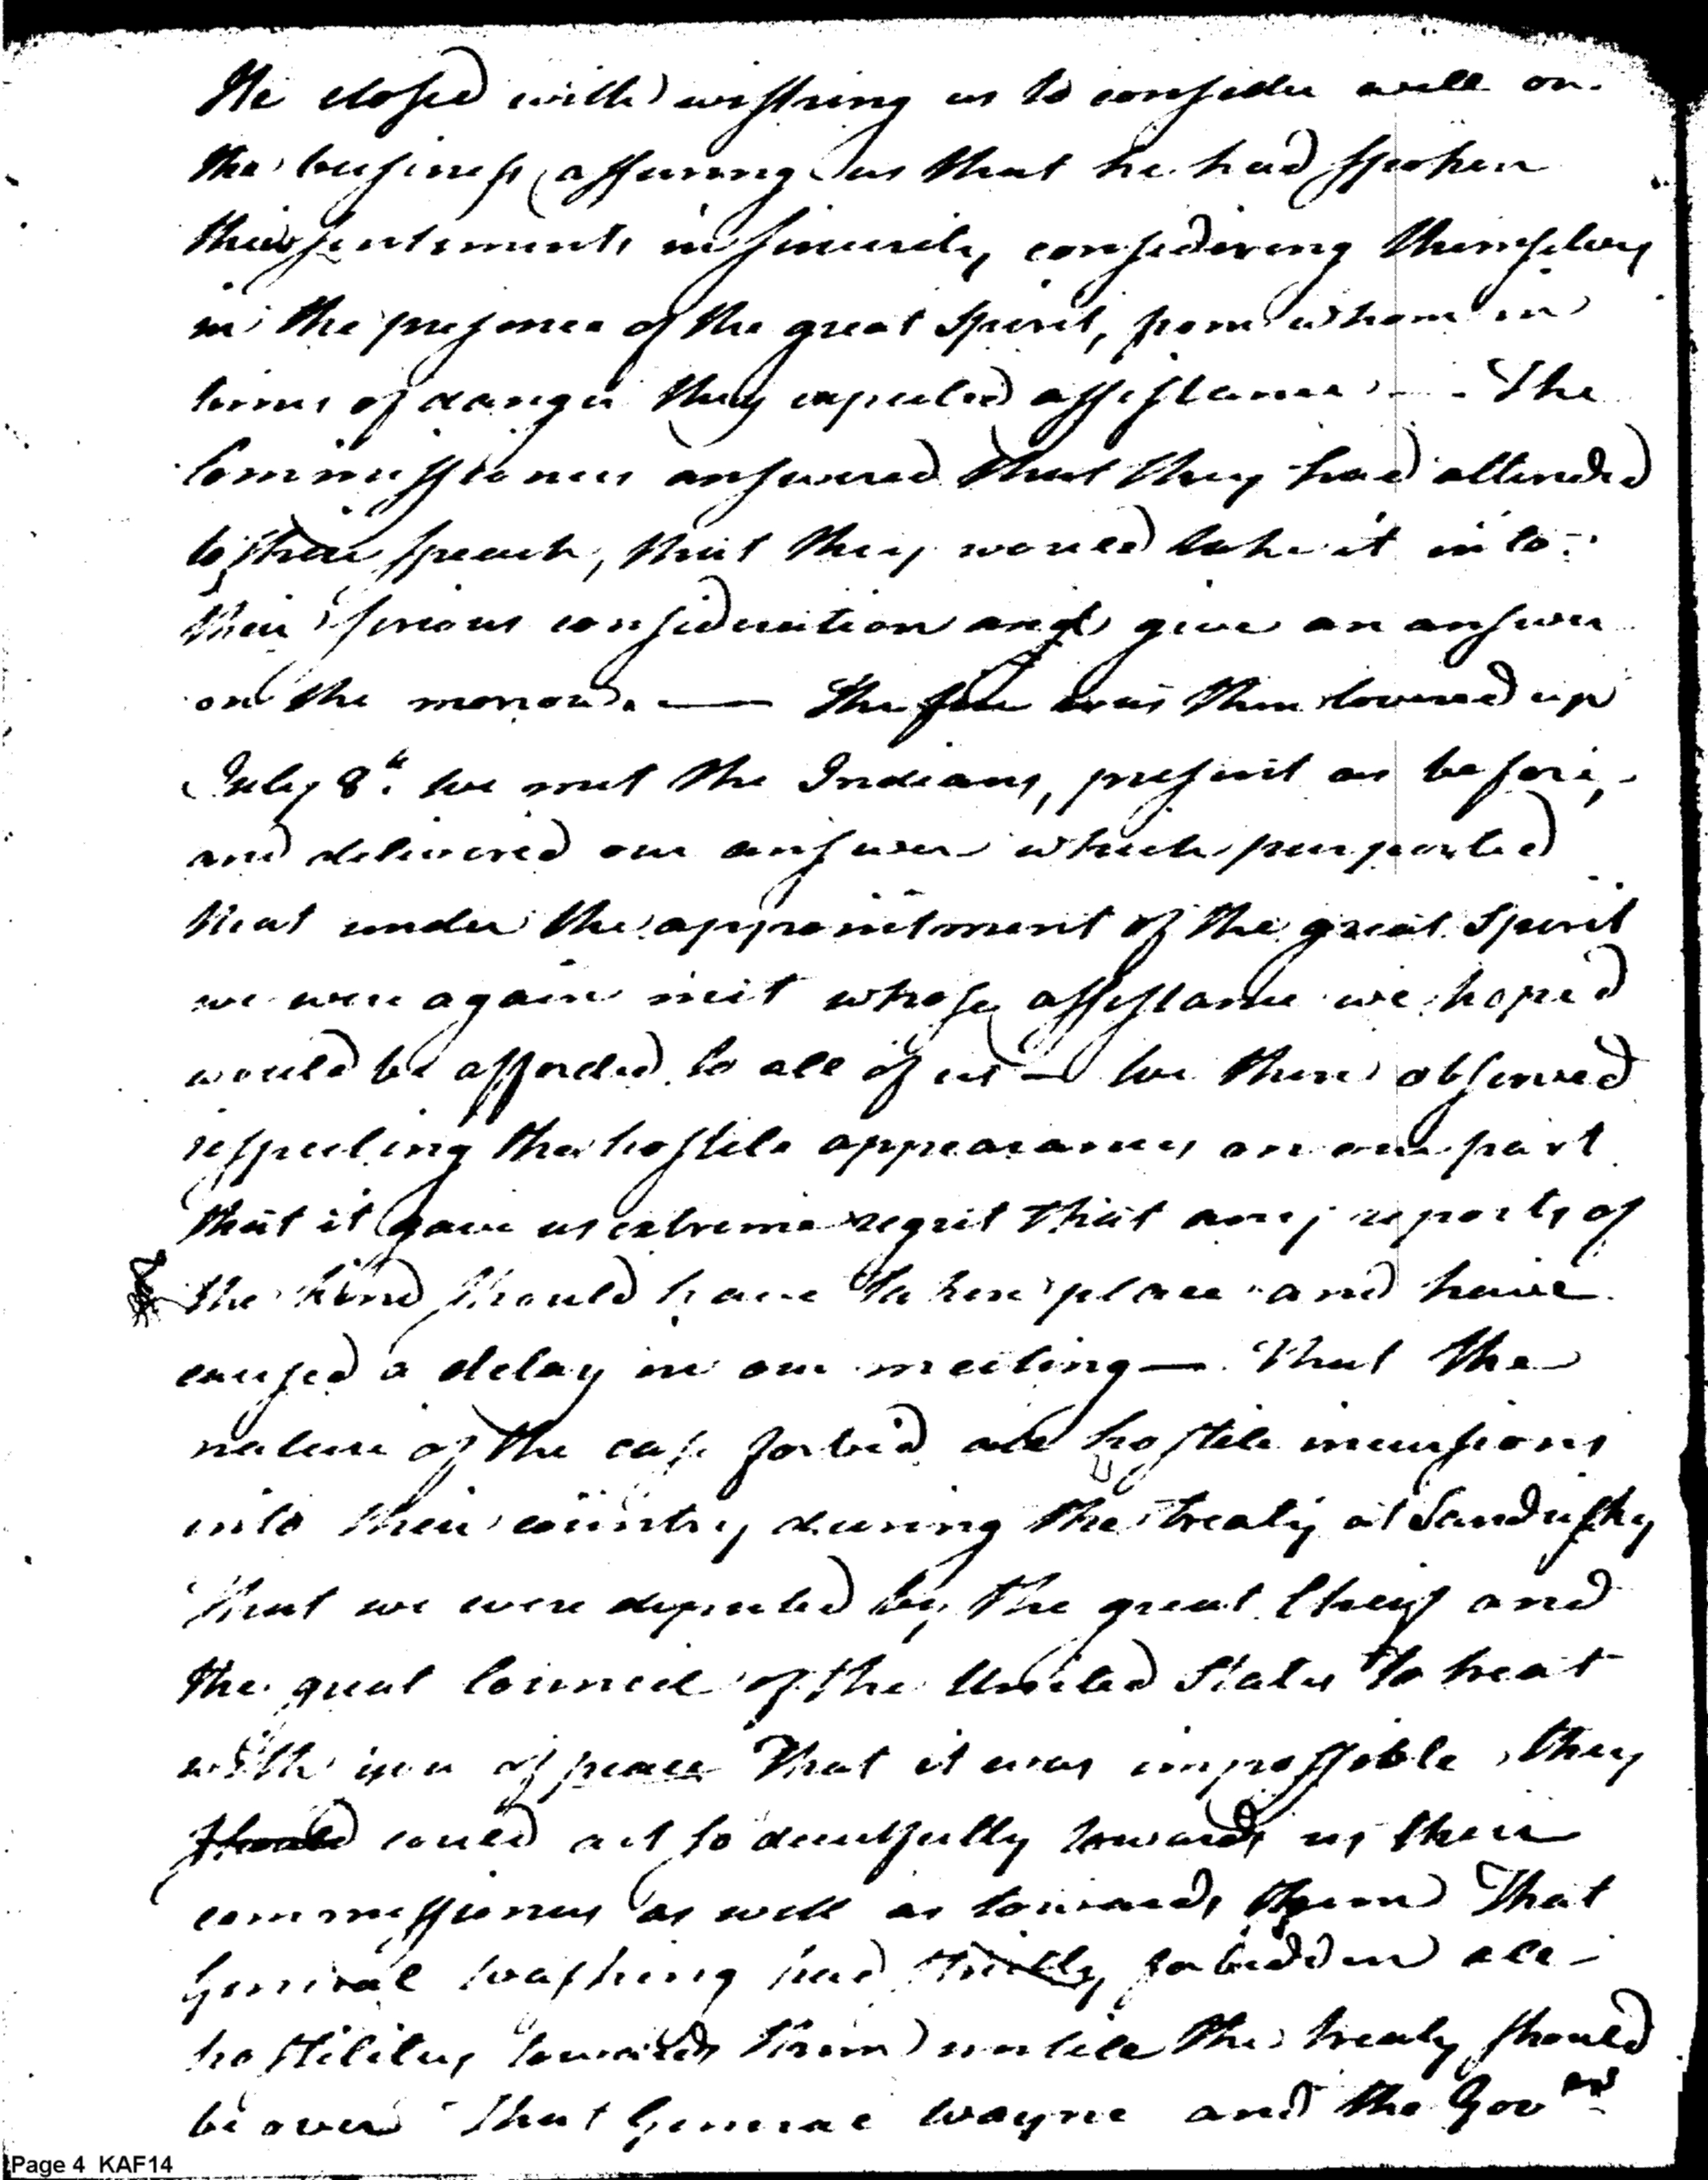 He closed with wishing us to consider well on
the business, assuring us that he had spoken
their sentiments in sincerity, considering themselves
in the presence of the great Spirit, from whom in
times of danger they expected assistance. — The
Commissioners answered that they had attended
to their speech, that they would take it into
their serious consideration and give an answer
on the morrow. — The fire was then covered up
July 8th. We met the Indians, present as before,
and delivered our answer which purported
that under the appointment of the great Spirit
we were again met whose assistance we hoped
would be afforded to all of us — We then observed
respecting the hostile appearances on our part
that it gave us extreme regret that any reports of
the kind should have taken place and have
caused a delay in our meeting — That the
nature of the case forbid all hostile incursions
into their country during the treaty at Sandusky
That we were deputed by the great Cheif and
the great Council of the United States to treat
with you of peace That it was impossible they
should could act so deceitfully towards us their
commissioners as well as towards them That
General Washing had strictly forbidden all
hostilities towards them untill the treaty should
be over That General Wayne and the Govrs
Page 4 KAF14